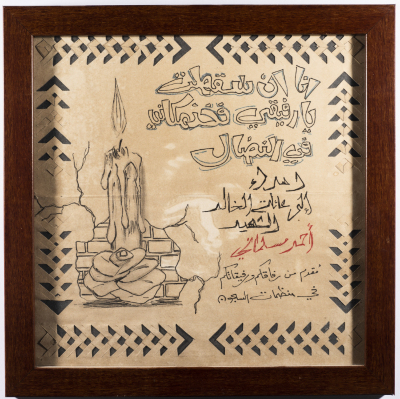 انا ان سقطت
يا رفيقي فخذ مكاني
في النضال
اهداء
الى عائلة الخالد
الشهيد
أحمد مسلماني
نقدم من رفاقكم ورفيقاتكم
في منظمات السجون